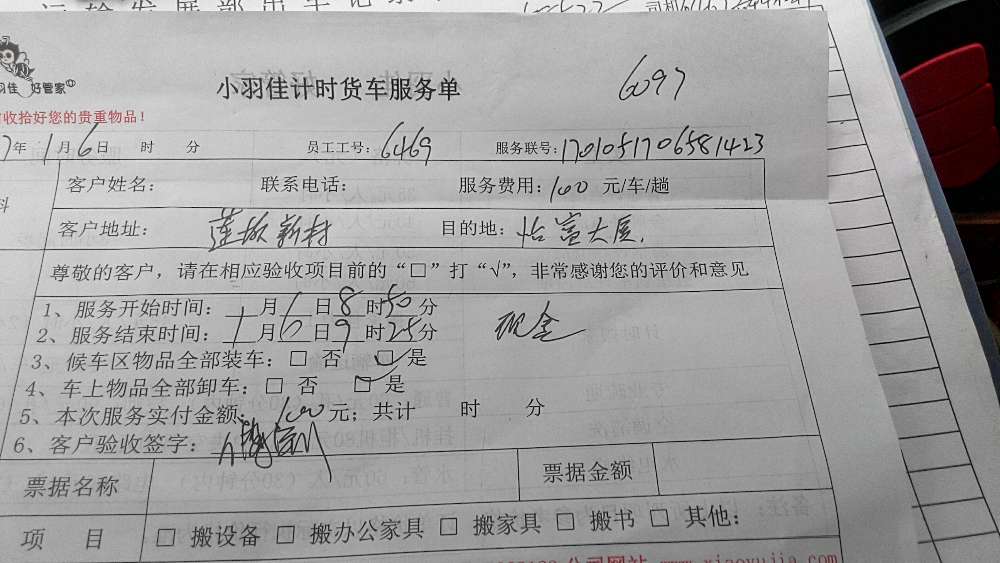 小羽佳计时货车服务单 6097
羽佳 好管家
收拾好您的贵重物品！
7年 1月6日 时 分 员工工号：6469 服务联号：1701051706581423
客户姓名： 联系电话： 服务费用：100 元/车/趟
客户地址：莲坂新村 目的地：怡富大厦.
尊敬的客户，请在相应验收项目前的“□”打“√”，非常感谢您的评价和意见
1、服务开始时间：1月6日8时50分
2、服务结束时间：1月6日9时25分 现金
3、候车区物品全部装车：□ 否 ☑ 是
4、车上物品全部卸车：□ 否 ☑ 是
5、本次服务实付金额：100元；共计 时 分
6、客户验收签字：
票据名称 票据金额
项 目 □ 搬设备 □ 搬办公家具 □ 搬家具 □ 搬书 □ 其他：